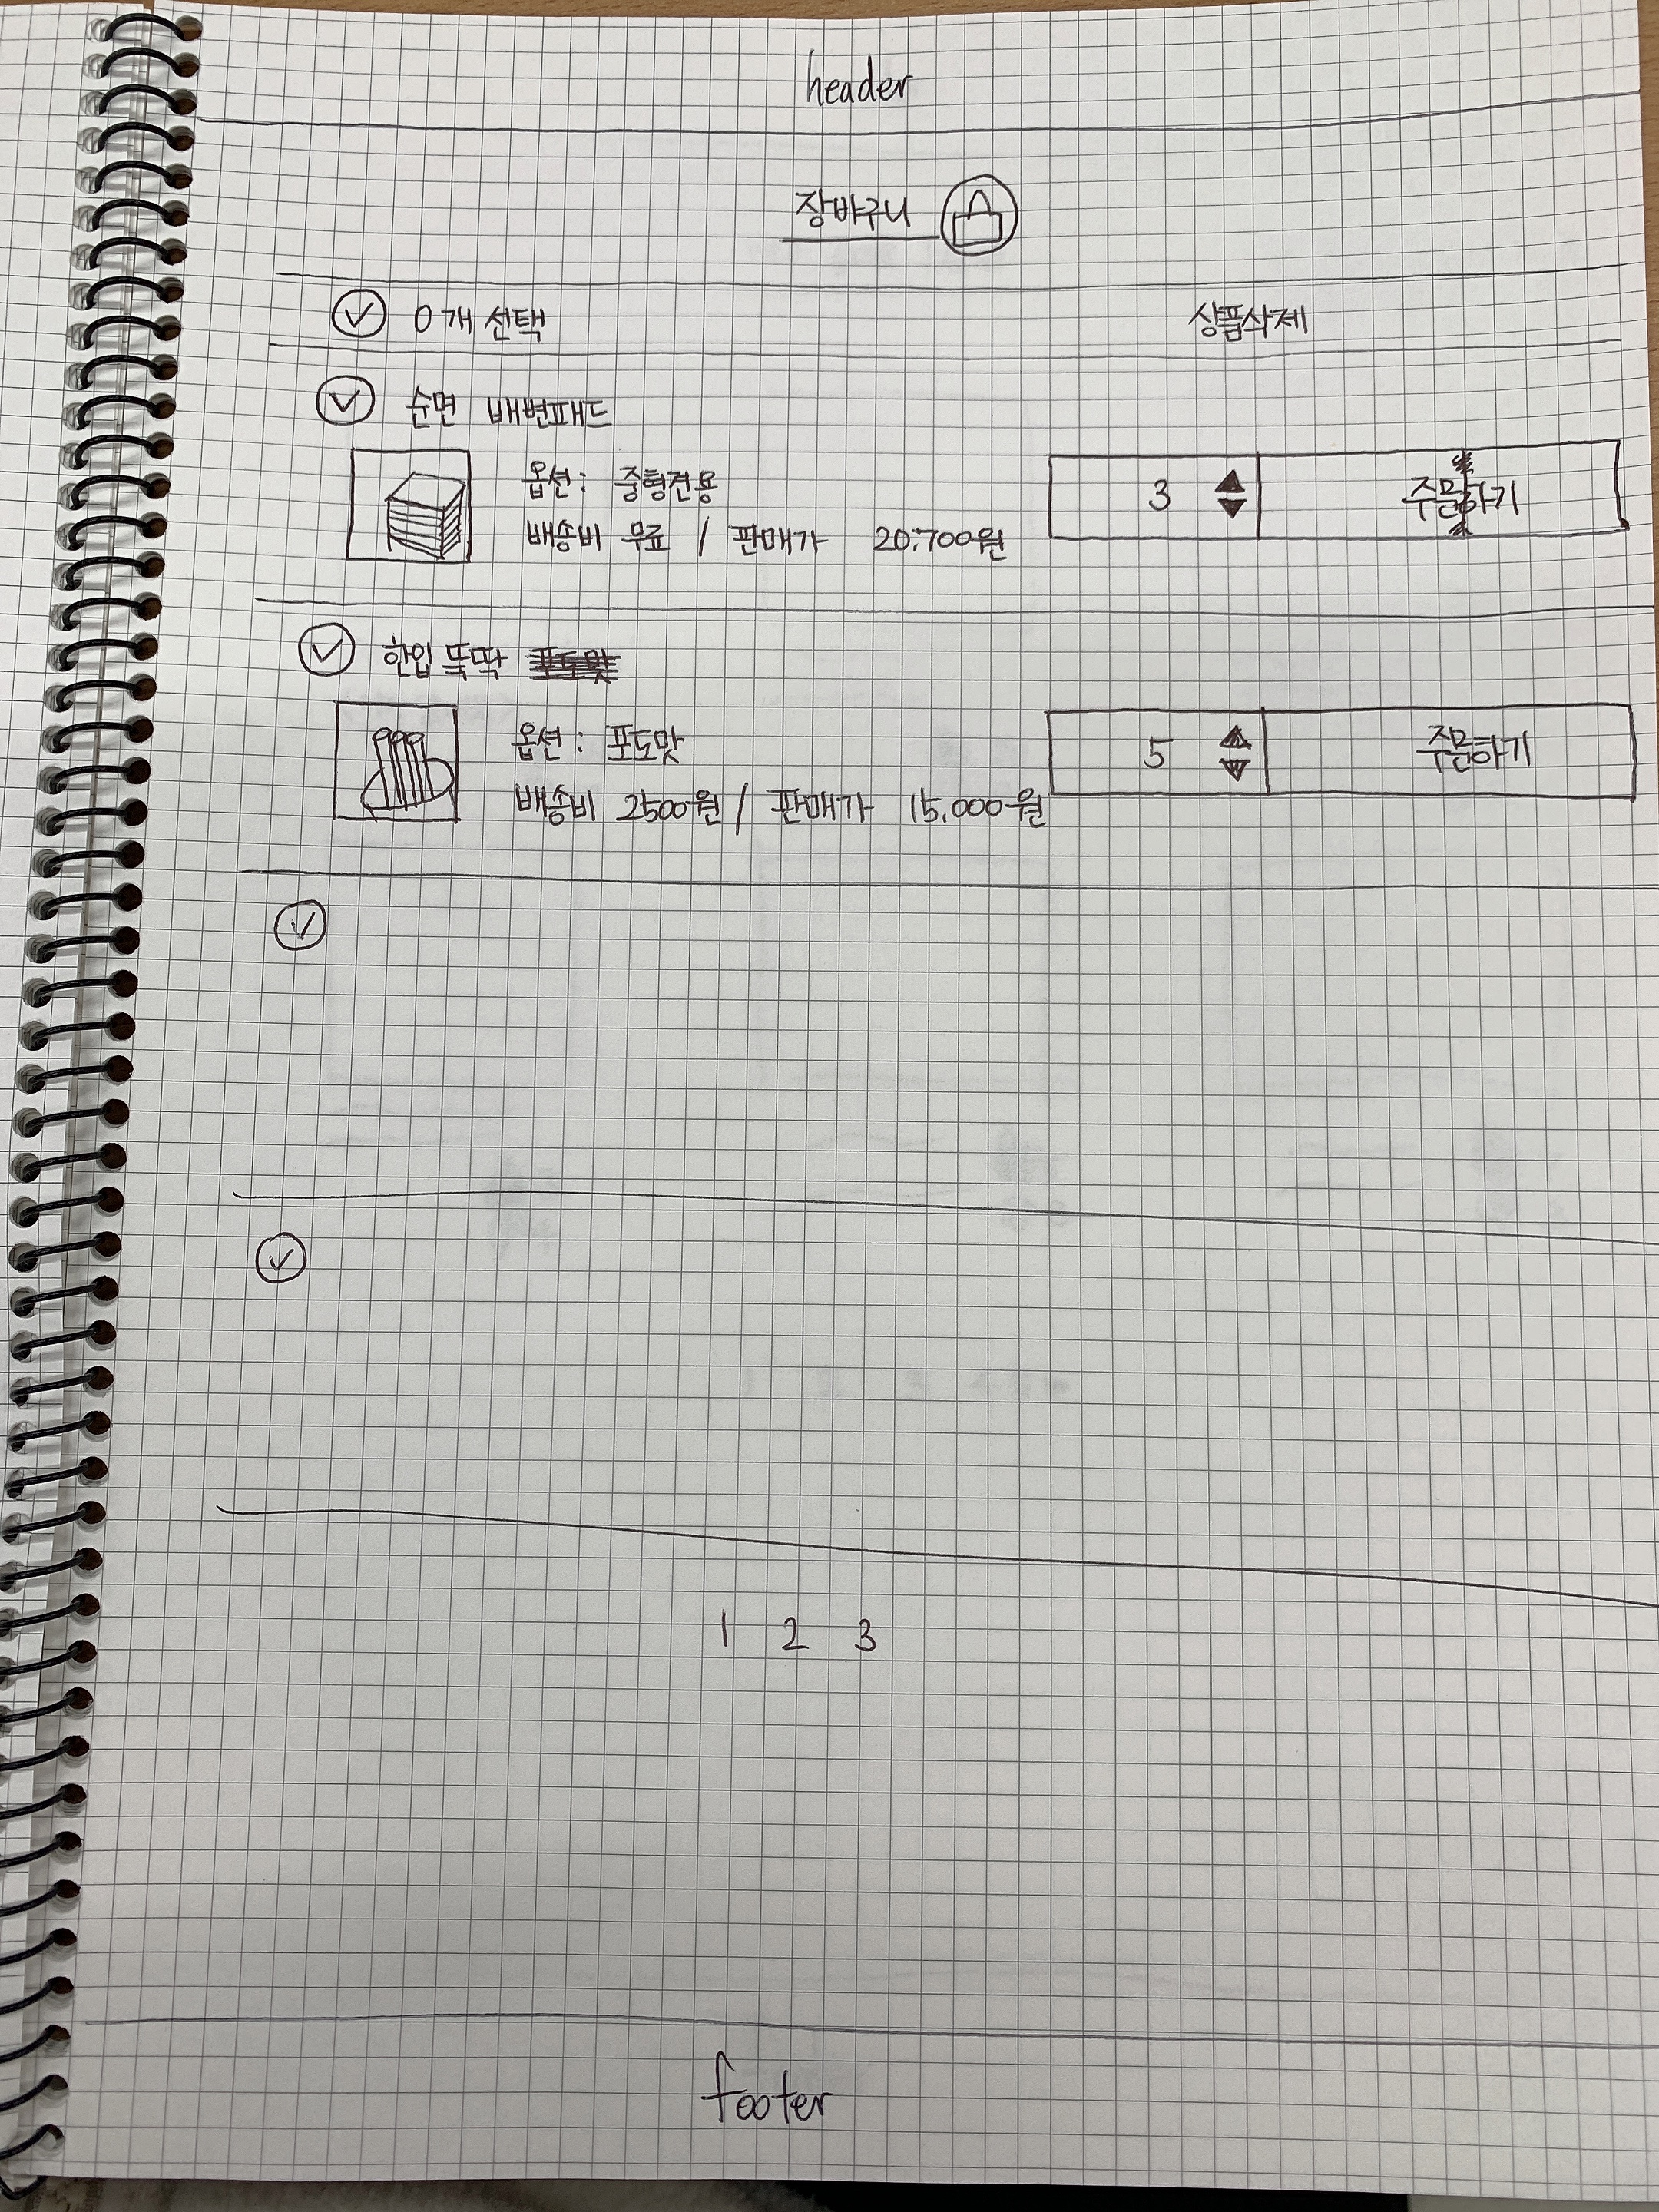 header
장바구니
0개 선택 상품삭제
순면 배변패드
옵션: 중형견용
배송비 무료 / 판매가 20,700원
3 주문하기
한입 뚝딱
옵션: 포도맛
배송비 2500원 / 판매가 15,000원
5 주문하기
1 2 3
footer